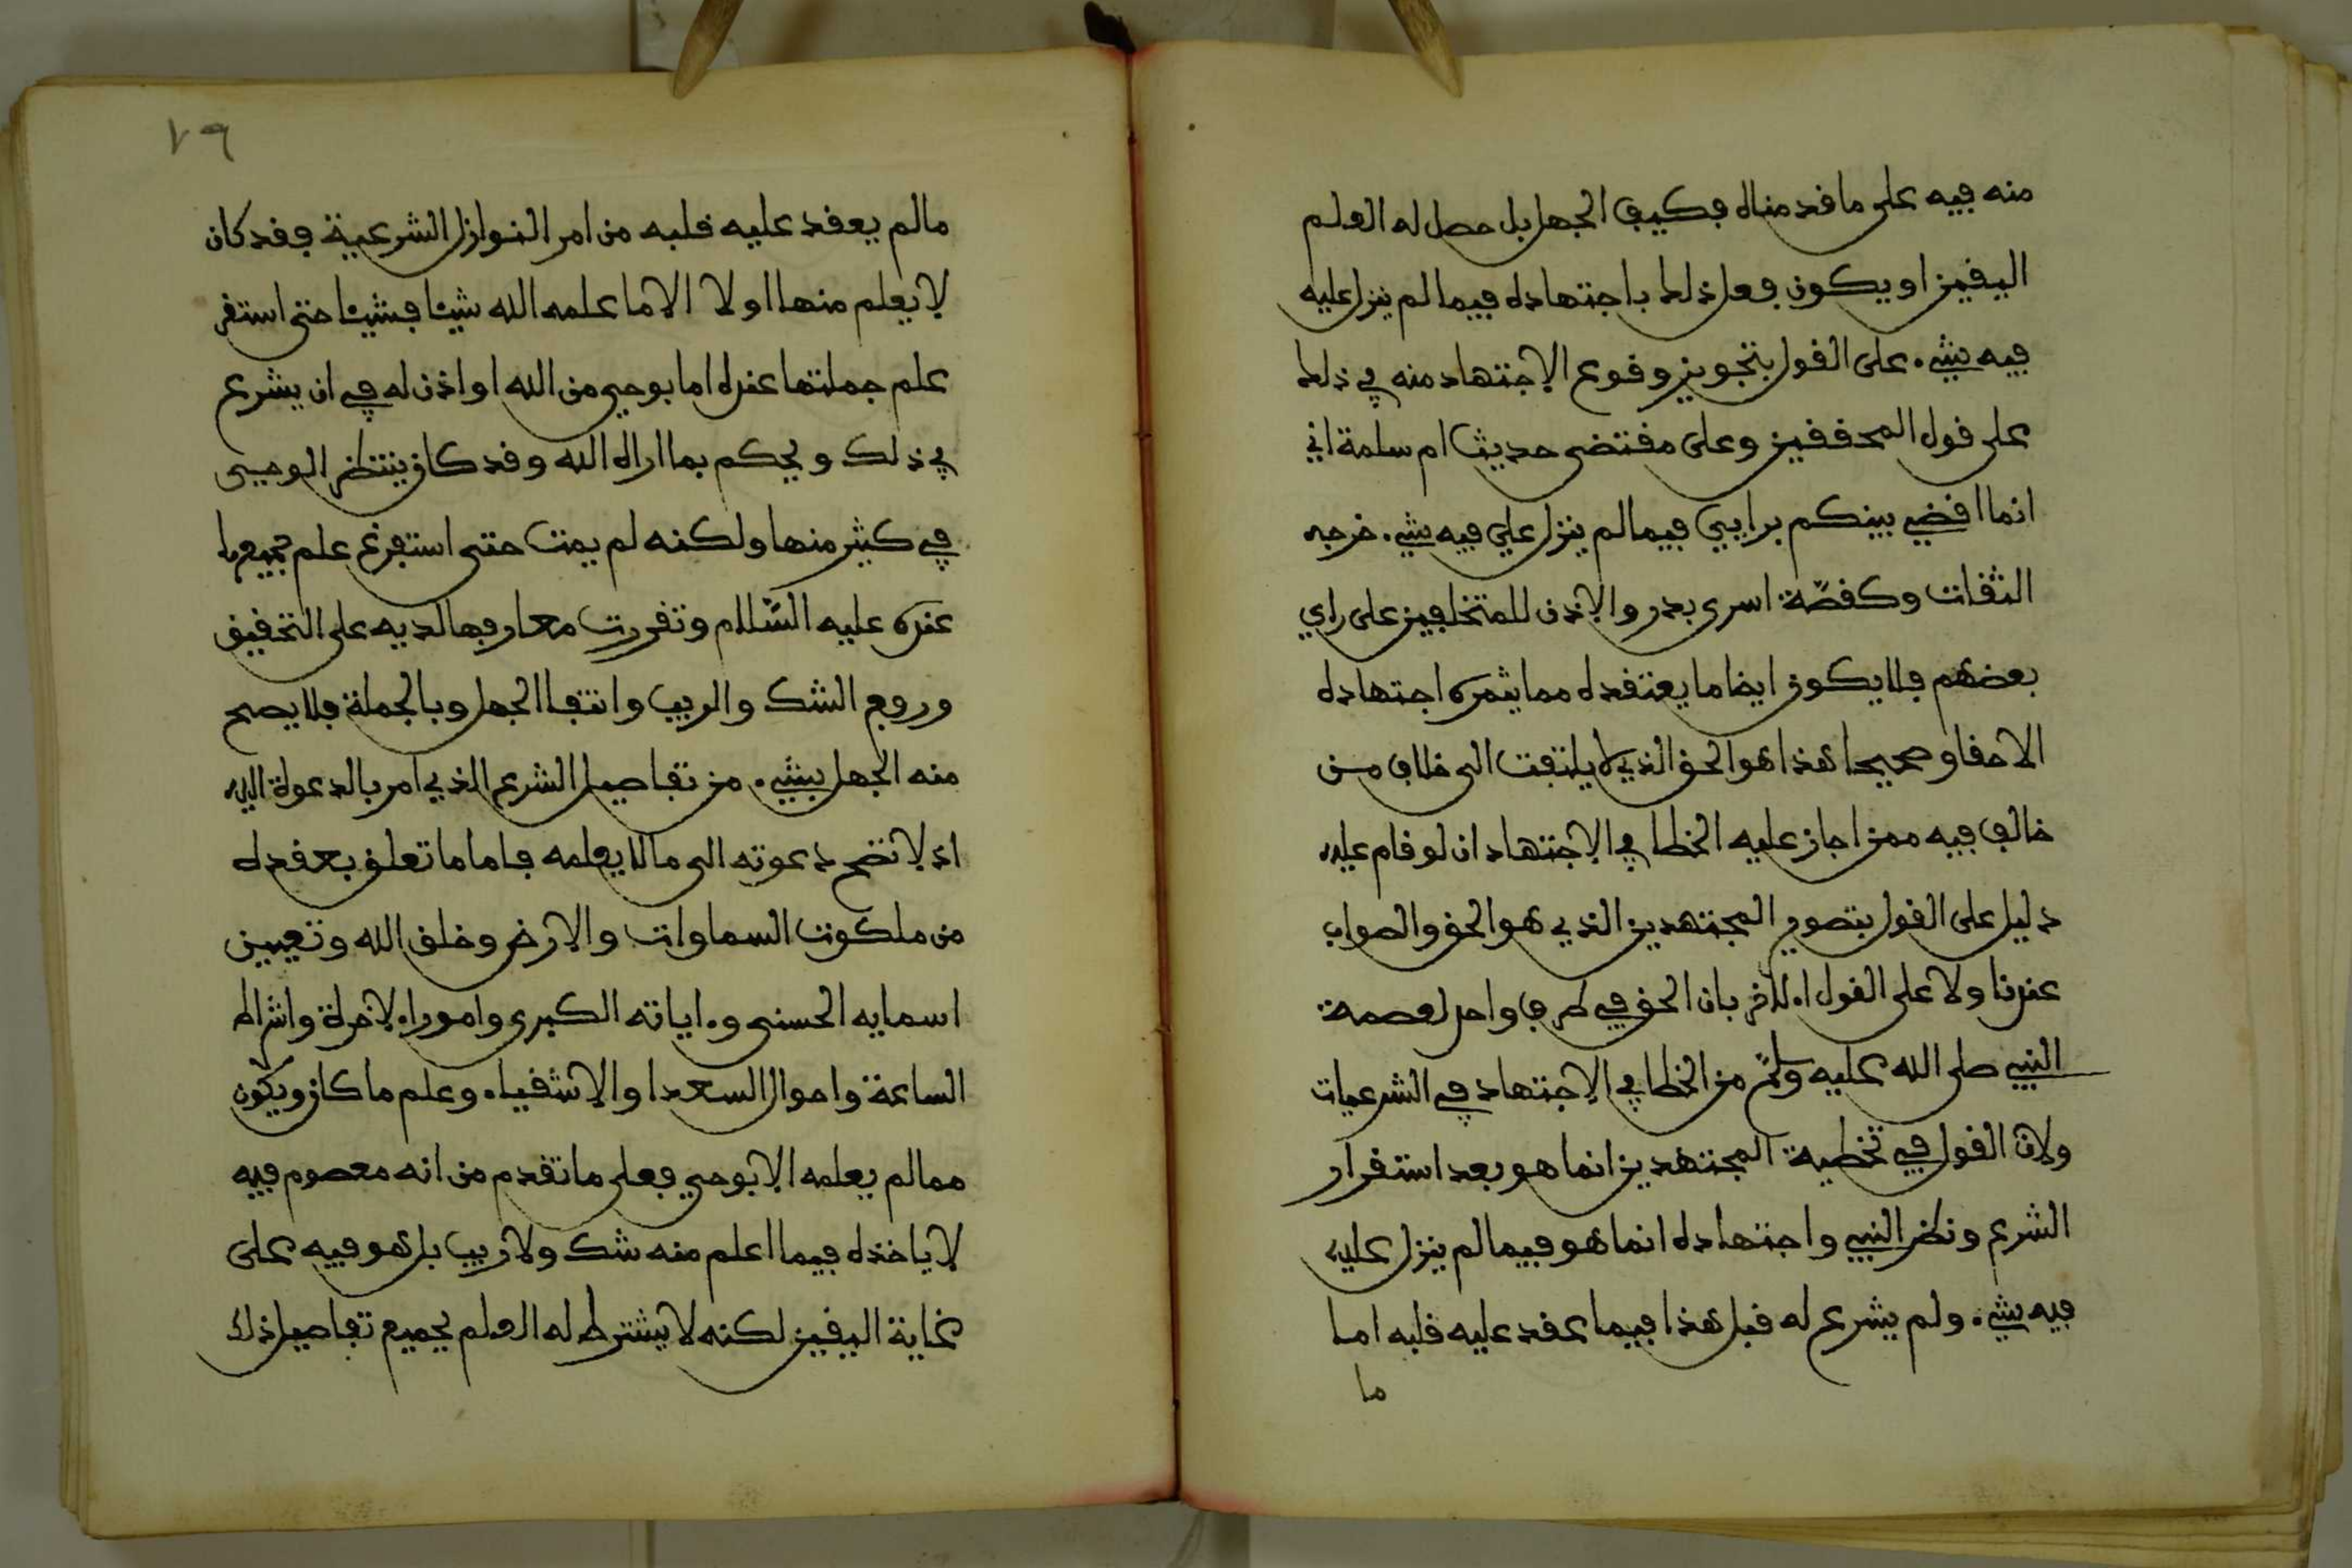 منه فيه على ما قدمناه فكيف الجهل بل حصل له العلم
اليقين او يكون فعل ذلك باجتهاده فيما لم ينزل عليه
فيه شيء على القول بتجويز وقوع الاجتهاد منه في ذلك
على قول المحققين وعلى مقتضى حديث ام سلمة اني
انما اقضي بينكم برايي فيما لم ينزل علي فيه شيء خرجه
الثقات وكقصّة اسرى بدر والاذن للمتخلفين على راي
بعضهم فلا يكون ايضا ما يعتقده مما يثمره اجتهاده
الا حقا وصحيحا هذا هو الحق الذي لا يلتفت الى خلاف من
خالف فيه ممن اجاز عليه الخطا في الاجتهاد ان لو قام عليه
دليل على القول بتصويب المجتهدين الذي هو الحق والصواب
عندنا ولا على القول الاخر بان الحق في طرف واحد لعصمة
النبي صلى الله عليه وسلم من الخطا في الاجتهاد في الشرعيات
ولان القول في تخطية المجتهدين انما هو بعد استقرار
الشرع ونظر النبي واجتهاده انما هو فيما لم ينزل عليه
فيه شيء ولم يشرع له قبل هذا فيما عقد عليه قلبه اما
ما
٧٩
ما لم يعقد عليه قلبه من امر النوازل الشرعية فقد كان
لا يعلم منها اولا الا ما علمه الله شيئا فشيئا حتى استقر
علم جملتها عنده اما بوحي من الله او اذن له في ان يشرع
في ذلك ويحكم بما اراه الله وقد كان ينتظر الوحي
في كثير منها ولكنه لم يمت حتى استفرغ علم جميعها
عنده عليه السّلام وتقررت معارفها لديه على التحقيق
ورفع الشك والريب وانتفا الجهل وبالجملة فلا يصح
منه الجهل بشيء من تفاصيل الشرع الذي امر بالدعوة اليه
اذ لا تصح دعوته الى ما لا يعلمه فاما ما تعلق بعقده
من ملكوت السماوات والارض وخلق الله وتعيين
اسمايه الحسنى واياته الكبرى وامور الاخرة واشراط
الساعة واحوال السعدا والاشقياء وعلم ما كان ويكون
مما لم يعلمه الا بوحي فعلى ما تقدم من انه معصوم فيه
لا ياخذه فيما اعلم منه شك ولا ريب بل هو فيه على
غاية اليقين لكنه لا يشترط له العلم بجميع تفاصيل ذلك